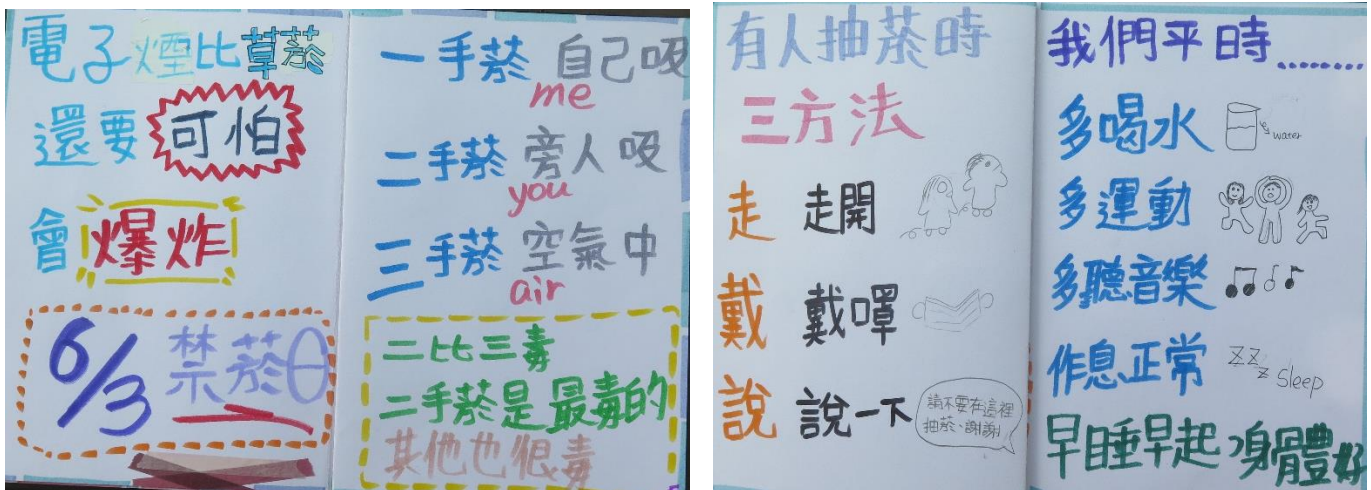 電子煙比草菸
還要可怕
會爆炸
6/3 禁菸日
一手菸 自己吸
me
二手菸 旁人吸
you
三手菸 空氣中
air
二比三毒
二手菸是最毒的
其他也很毒
有人抽菸時
三方法
走 走開
戴 戴罩
說 說一下
請不要在這裡
抽菸、謝謝!
我們平時........
多喝水
water
多運動
多聽音樂
作息正常
ZZZ sleep
早睡早起身體好